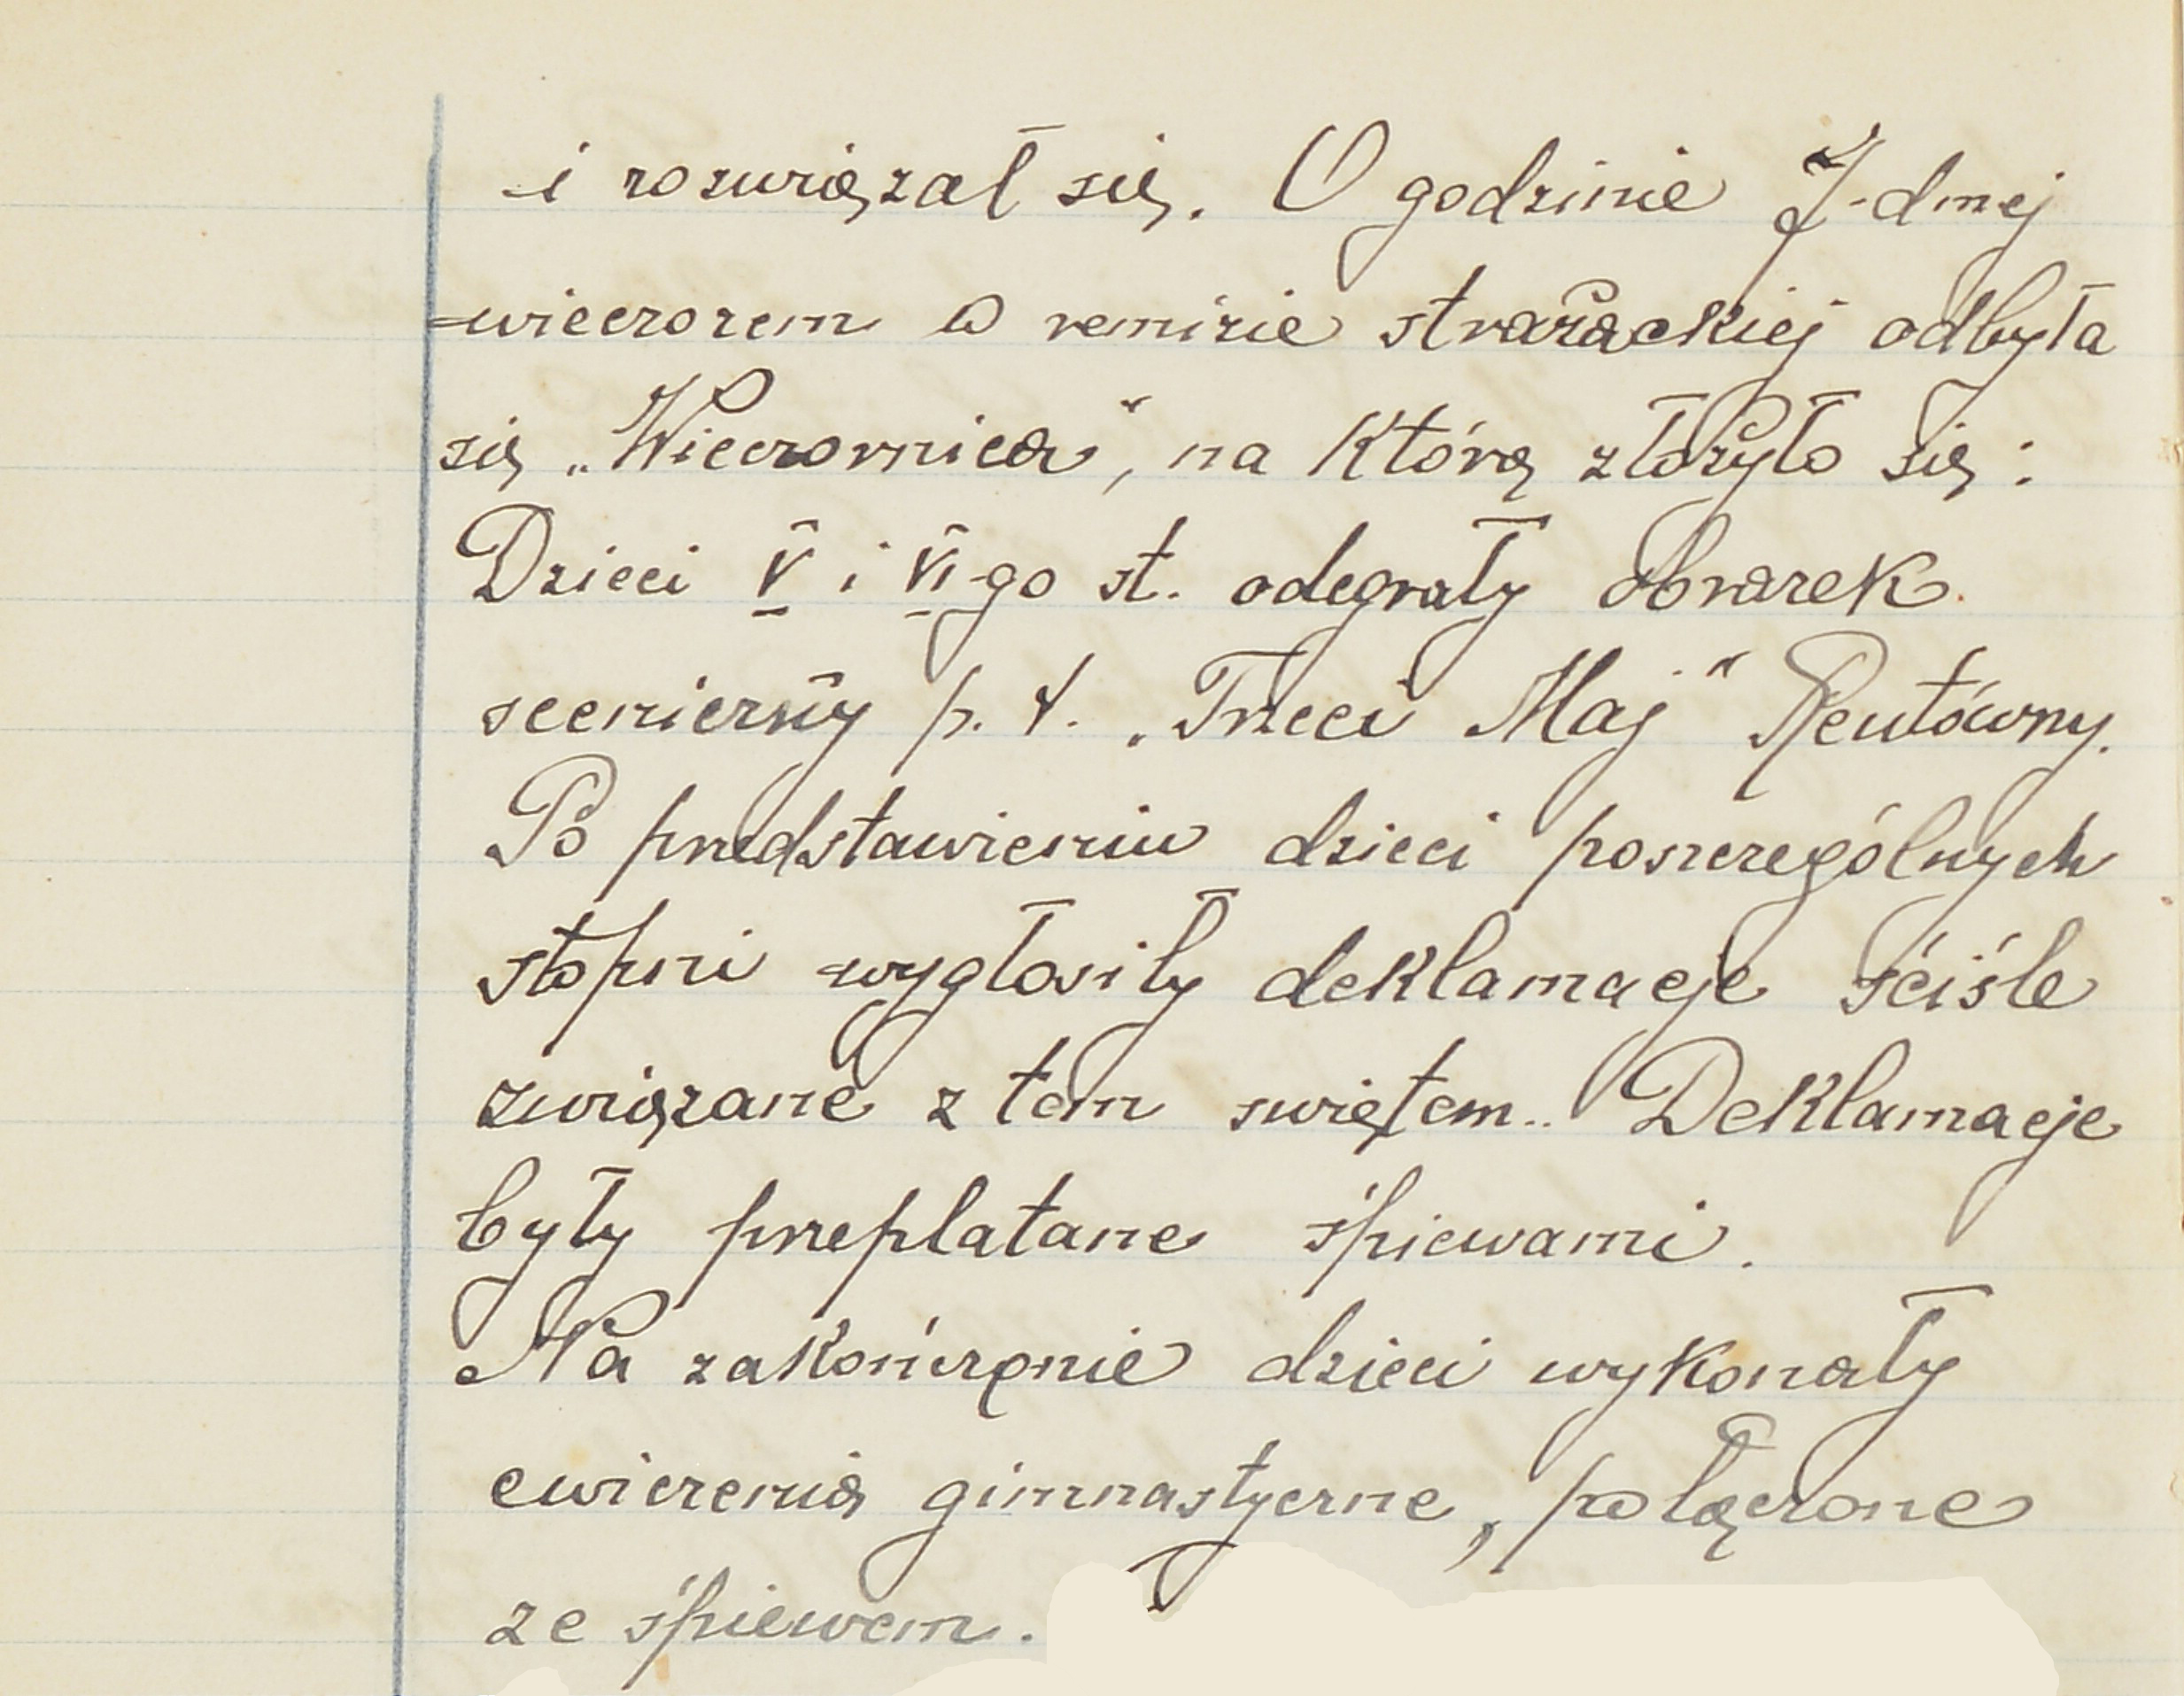 i rozwiązał się. O godzinie 7-dmej
wieczorem w remizie strażackiej odbyła
się „Wieczornica", na którą złożyło się:
Dzieci V i VI-go st. odegrały obrazek
sceniczny p. t. „Trzeci Maj" Reutówny.
Po przedstawieniu dzieci poszczególnych
stopni wygłosiły deklamacje ściśle
związane z tem swiętem.. Deklamacje
były przeplatane śpiewami.
Na zakończenie dzieci wykonały
cwiczenia gimnastyczne, połączone
ze śpiewem.